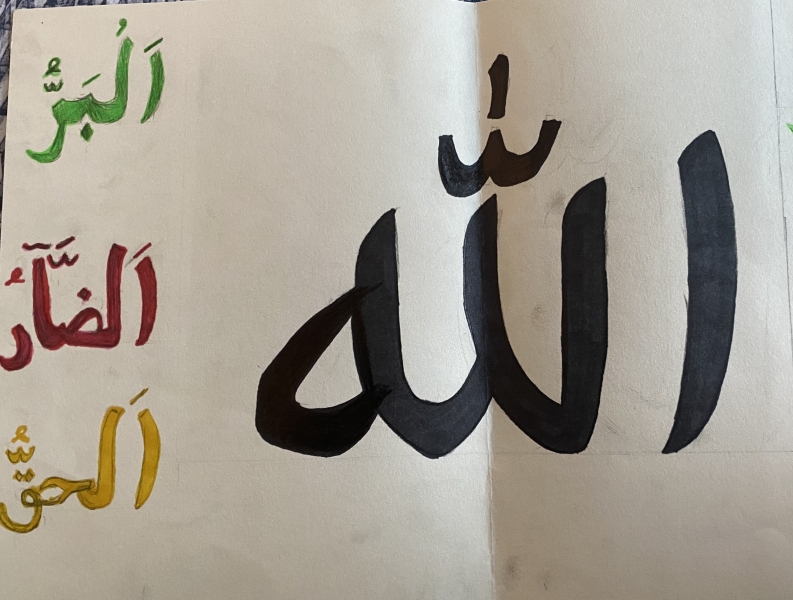 الله
اَلْبَرُّ
اَلضَّآرُ
اَلحقُّ